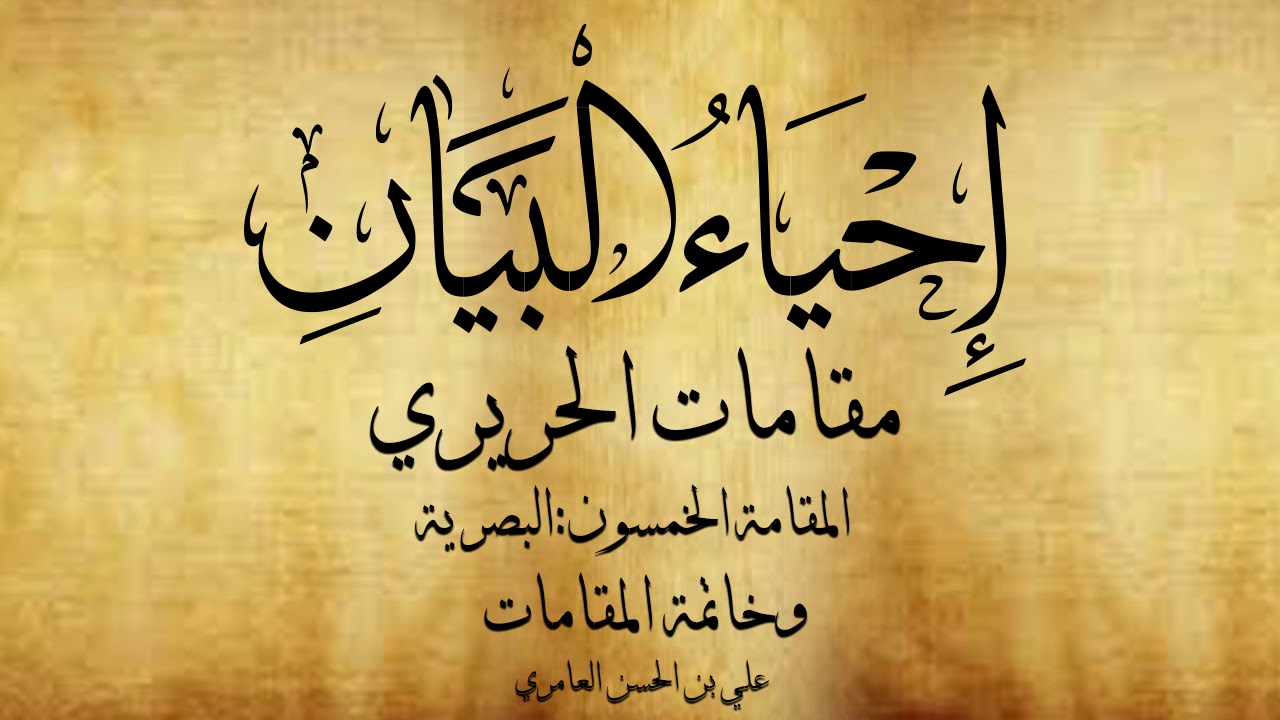 إِحْيَاءُ الْبَيَانِ
مقامات الحريري
المقامة الخمسون:البصرية
وخاتمة المقامات
علي بن الحسن العامري